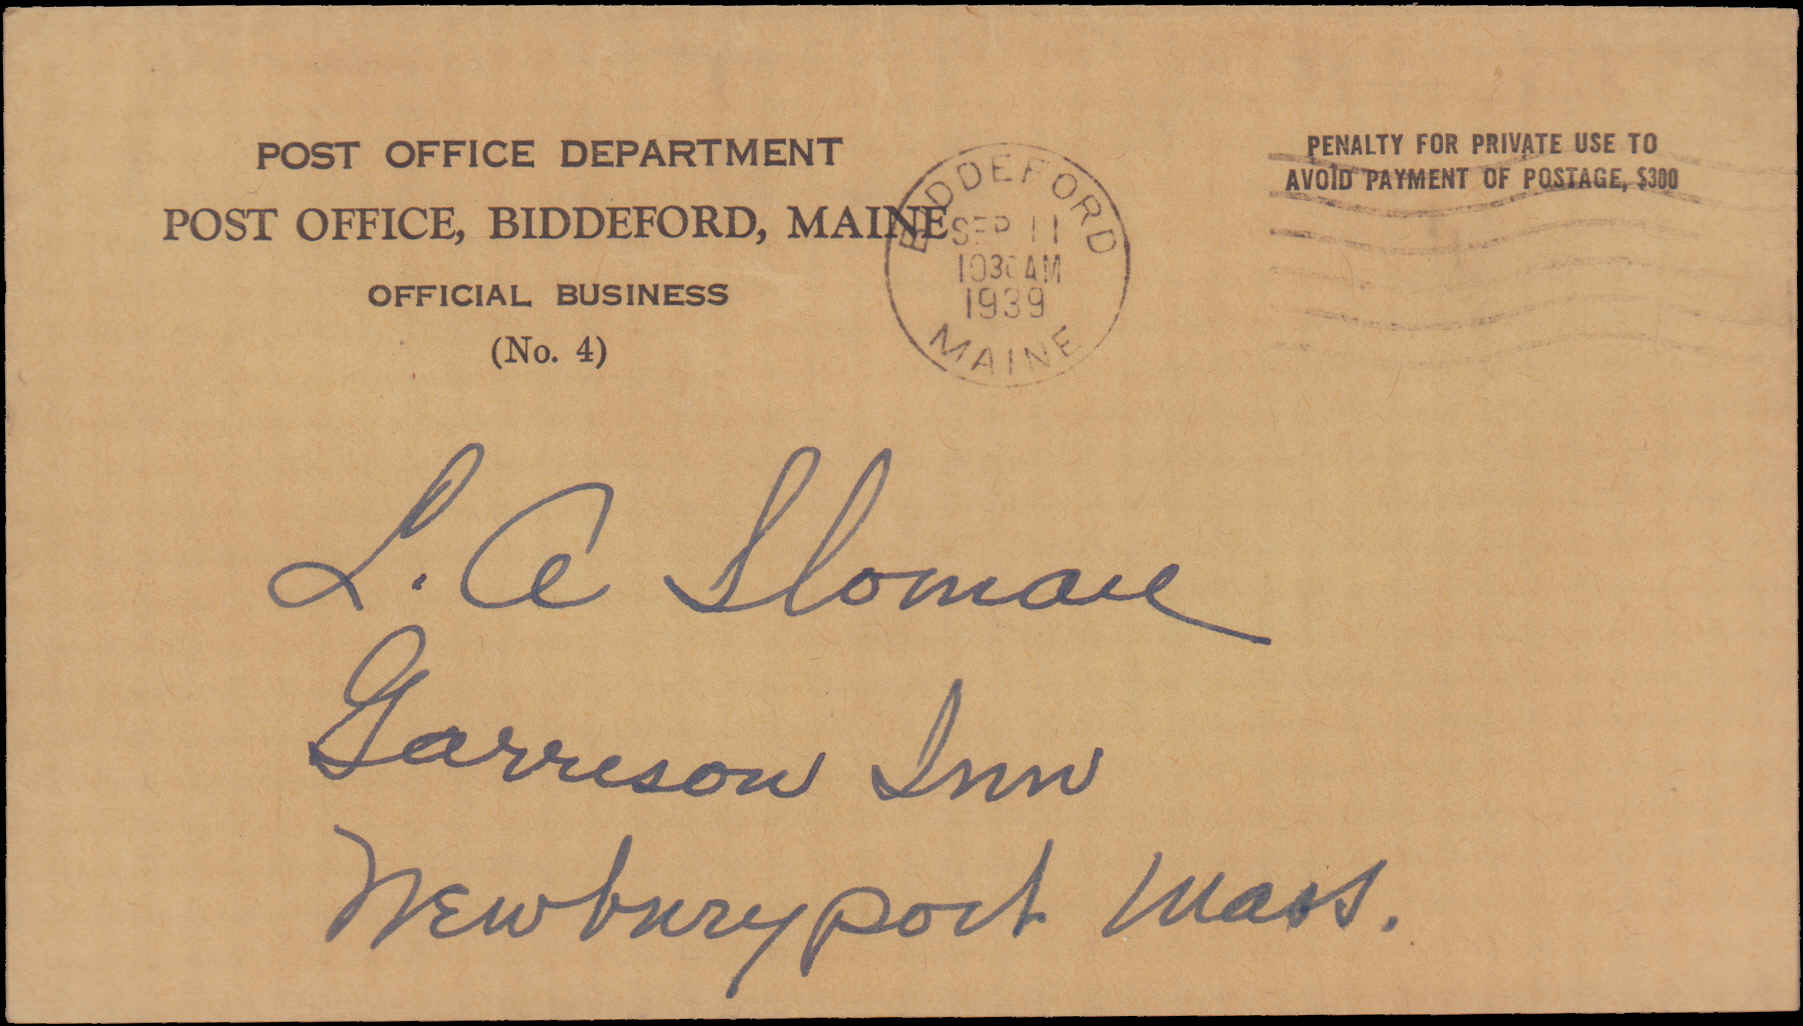 POST OFFICE DEPARTMENT
POST OFFICE, BIDDEFORD, MAINE
OFFICIAL BUSINESS
(No. 4)
BIDDEFORD
SEP 11
1030AM
1939
MAINE
PENALTY FOR PRIVATE USE TO
AVOID PAYMENT OF POSTAGE, $300
L. A Sloman
Garrison Inn
Newburyport Mass.